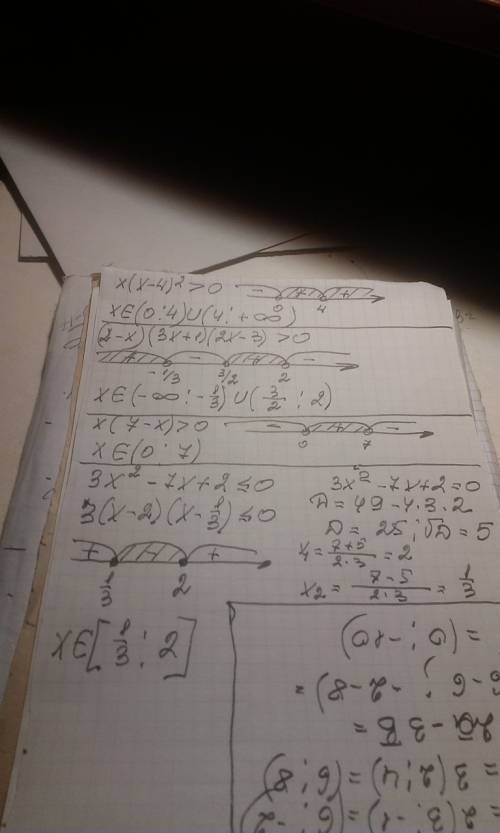 x(x-4)²>0
- + +
0 4
x∈(0;4)∪(4;+∞)
(2-x)(3x+1)(2x-3)>0
+ - + -
-1/3 3/2 2
x∈(-∞;-1/3)∪(3/2;2)
x(7-x)>0
- + -
0 7
x∈(0;7)
3x²-7x+2≤0
3(x-2)(x-1/3)≤0
+ - +
1/3 2
x∈[1/3;2]
3x²-7x+2=0
D=49-4·3·2
D=25;√D=5
x=7+5/2·3=2
x₂=7-5/2·3=1/3
=3(2;4)=(6;8)
=(0;-10)